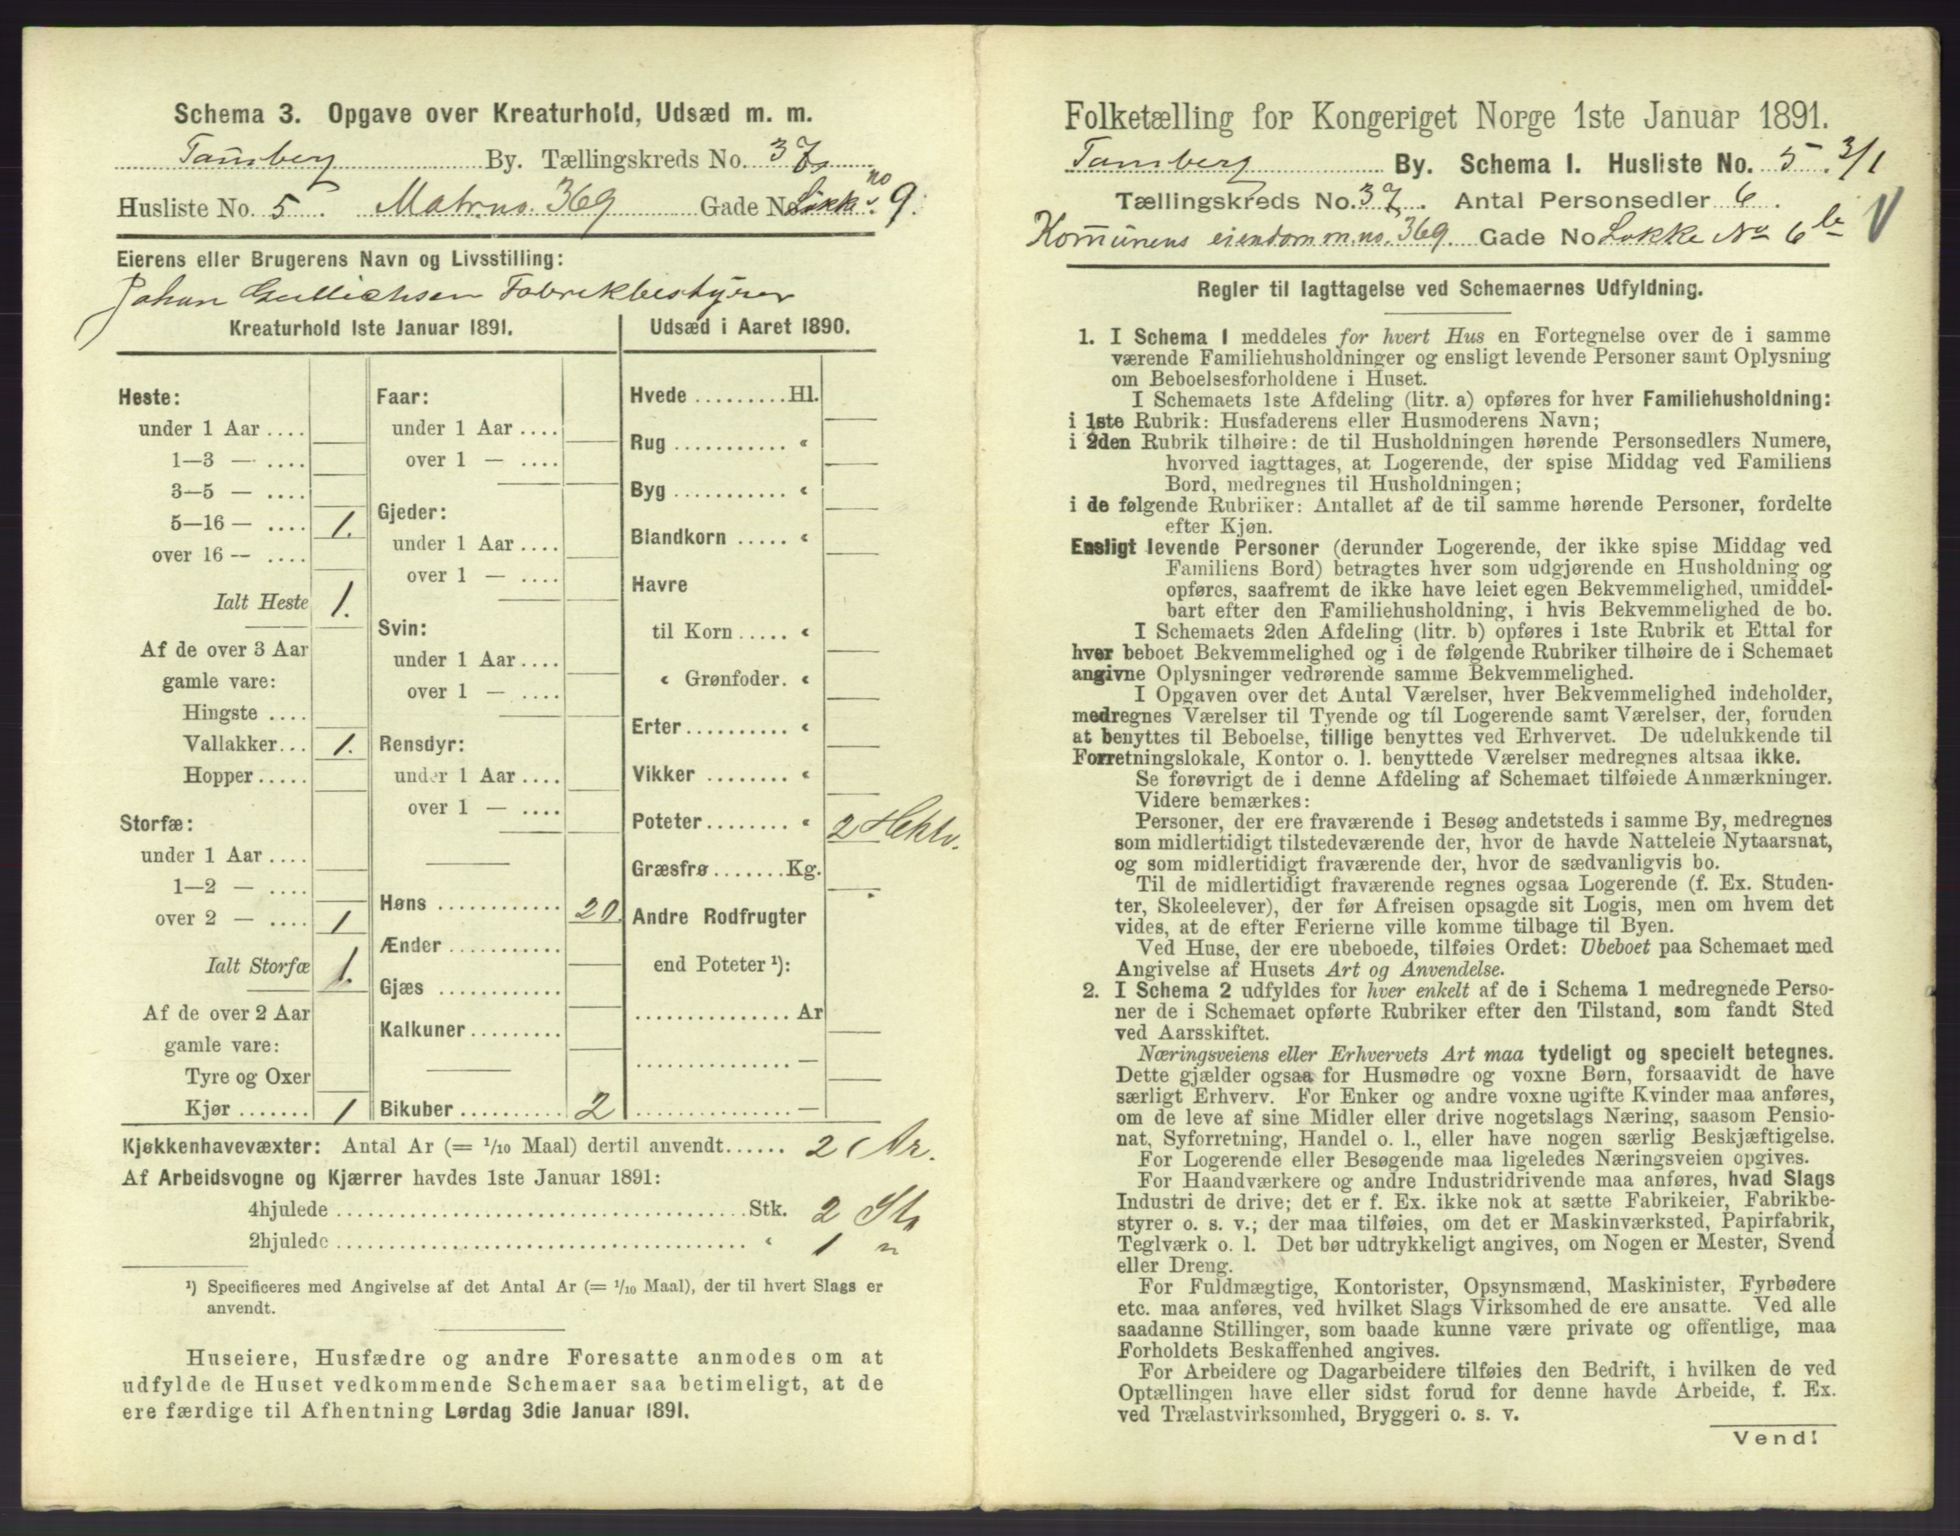 Schema 3. Opgave over Kreaturhold, Udsæd m. m.
Tønsberg By. Tællingskreds No. 37.
Husliste No. 5. Matr. no. 369 Gade No. 9.
Eierens eller Brugerens Navn og Livsstilling:
Johan Gullichsen Fabrikbestyrer
Kreaturhold 1ste Januar 1891.
Heste:
under 1 Aar ....
1—3 — ....
3—5 — ....
5—16 — .... 1.
over 16 — ....
Ialt Heste 1.
Af de over 3 Aar
gamle vare:
Hingste ....
Vallakker... 1.
Hopper.....
Storfæ:
under 1 Aar ....
1—2 — ....
over 2 — .... 1
Ialt Storfæ 1.
Af de over 2 Aar
gamle vare:
Tyre og Oxer
Kjør ....... 1
Faar:
under 1 Aar ....
over 1 — ....
Gjeder:
under 1 Aar ....
over 1 — ....
Svin:
under 1 Aar ....
over 1 — ....
Rensdyr:
under 1 Aar ....
over 1 — ....
Høns ............ 20
Ænder ...........
Gjæs ............
Kalkuner.........
Bikuber .......... 2
Udsæd i Aaret 1890.
Hvede .........Hl.
Rug ........... «
Byg ........... «
Blandkorn ..... «
Havre
til Korn ..... «
« Grønfoder. «
Erter.......... «
Vikker ........ «
Poteter........ « 2 Hektr.
Græsfrø.......Kg.
Andre Rodfrugter
end Poteter ¹):
............... Ar
............... —
............... —
Kjøkkenhavevæxter: Antal Ar (= 1/10 Maal) dertil anvendt...... 2 Ar.
Af Arbeidsvogne og Kjærrer havdes 1ste Januar 1891:
4hjulede ........................................Stk. 2 St.
2hjulede ........................................ « 1 "
¹) Specificeres med Angivelse af det Antal Ar (= 1/10 Maal), der til hvert Slags er
anvendt.
Huseiere, Husfædre og andre Foresatte anmodes om at
udfylde de Huset vedkommende Schemaer saa betimeligt, at de
ere færdige til Afhentning Lørdag 3die Januar 1891.
Folketælling for Kongeriget Norge 1ste Januar 1891.
Tønsberg By. Schema 1. Husliste No. 5. 3/1
Tællingskreds No. 37. Antal Personsedler 6.
Komunens eiendom m. no. 369. Gade No Løkke No 6 b
Regler til Iagttagelse ved Schemaernes Udfyldning.
1. I Schema 1 meddeles for hvert Hus en Fortegnelse over de i samme
værende Familiehusholdninger og ensligt levende Personer samt Oplysning
om Beboelsesforholdene i Huset.
I Schemaets 1ste Afdeling (litr. a) opføres for hver Familiehusholdning:
i 1ste Rubrik: Husfaderens eller Husmoderens Navn;
i 2den Rubrik tilhøire: de til Husholdningen hørende Personsedlers Numere,
hvorved iagttages, at Logerende, der spise Middag ved Familiens
Bord, medregnes til Husholdningen;
i de følgende Rubriker: Antallet af de til samme hørende Personer, fordelte
efter Kjøn.
Ensligt levende Personer (derunder Logerende, der ikke spise Middag ved
Familiens Bord) betragtes hver som udgjørende en Husholdning og
opføres, saafremt de ikke have leiet egen Bekvemmelighed, umiddel-
bart efter den Familiehusholdning, i hvis Bekvemmelighed de bo.
I Schemaets 2den Afdeling (litr. b) opføres i 1ste Rubrik et Ettal for
hver beboet Bekvemmelighed og i de følgende Rubriker tilhøire de i Schemaet
angivne Oplysninger vedrørende samme Bekvemmelighed.
I Opgaven over det Antal Værelser, hver Bekvemmelighed indeholder,
medregnes Værelser til Tyende og til Logerende samt Værelser, der, foruden
at benyttes til Beboelse, tillige benyttes ved Erhvervet. De udelukkende til
Forretningslokale, Kontor o. l. benyttede Værelser medregnes altsaa ikke.
Se forøvrigt de i denne Afdeling af Schemaet tilføiede Anmærkninger.
Videre bemærkes:
Personer, der ere fraværende i Besøg andetsteds i samme By, medregnes
som midlertidigt tilstedeværende der, hvor de havde Natteleie Nytaarsnat,
og som midlertidigt fraværende der, hvor de sædvanligvis bo.
Til de midlertidigt fraværende regnes ogsaa Logerende (f. Ex. Studen-
ter, Skoleelever), der før Afreisen opsagde sit Logis, men om hvem det
vides, at de efter Ferierne ville komme tilbage til Byen.
Ved Huse, der ere ubeboede, tilføies Ordet: Ubeboet paa Schemaet med
Angivelse af Husets Art og Anvendelse.
2. I Schema 2 udfyldes for hver enkelt af de i Schema 1 medregnede Perso-
ner de i Schemaet opførte Rubriker efter den Tilstand, som fandt Sted
ved Aarsskiftet.
Næringsveiens eller Erhvervets Art maa tydeligt og specielt betegnes.
Dette gjælder ogsaa for Husmødre og voxne Børn, forsaavidt de have
særligt Erhverv. For Enker og andre voxne ugifte Kvinder maa anføres,
om de leve af sine Midler eller drive nogetslags Næring, saasom Pensio-
nat, Syforretning, Handel o. l., eller have nogen særlig Beskjæftigelse.
For Logerende eller Besøgende maa ligeledes Næringsveien opgives.
For Haandværkere og andre Industridrivende maa anføres, hvad Slags
Industri de drive; det er f. Ex. ikke nok at sætte Fabrikeier, Fabrikbe-
styrer o. s. v.; der maa tilføies, om det er Maskinværksted, Papirfabrik,
Teglværk o. l. Det bør udtrykkeligt angives, om Nogen er Mester, Svend
eller Dreng.
For Fuldmægtige, Kontorister, Opsynsmænd, Maskinister, Fyrbødere
etc. maa anføres, ved hvilket Slags Virksomhed de ere ansatte. Ved alle
saadanne Stillinger, som baade kunne være private og offentlige, maa
Forholdets Beskaffenhed angives.
For Arbeidere og Dagarbeidere tilføies den Bedrift, i hvilken de ved
Optællingen have eller sidst forud for denne havde Arbeide, f. Ex.
ved Trælastvirksomhed, Bryggeri o. s. v.
Vend!